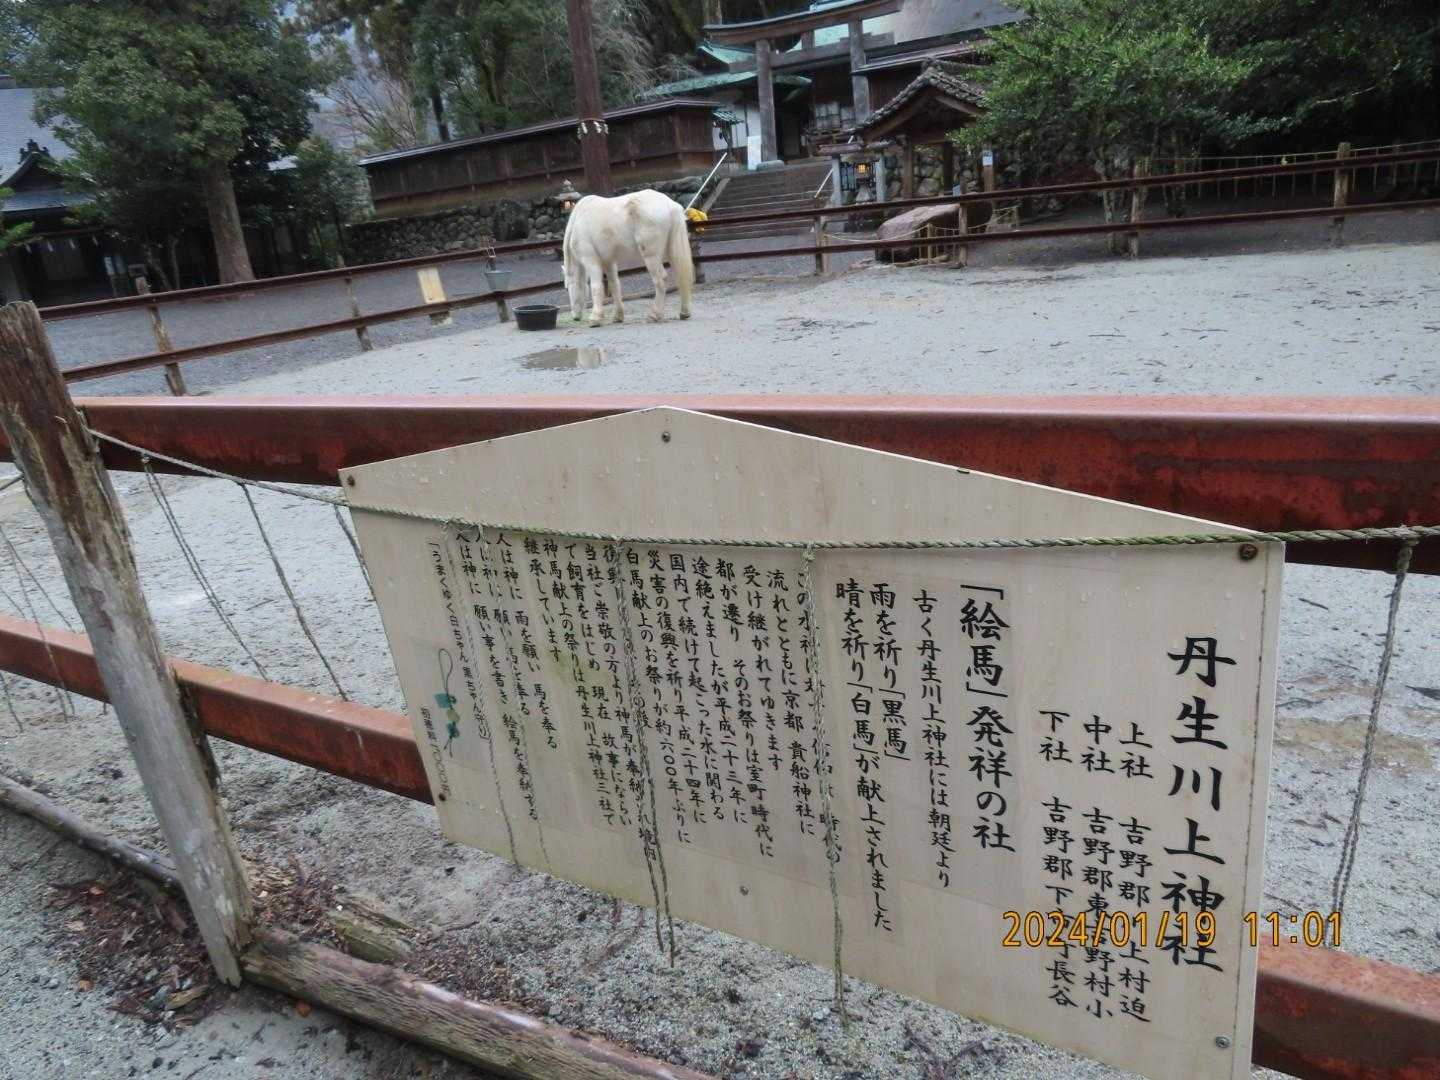 丹生川上神社
上社 吉野郡川上村迫
中社 吉野郡東吉野村小
下社 吉野郡下市町長谷
「絵馬」発祥の社
古く丹生川上神社には朝廷より
雨を祈り「黒馬」
晴を祈り「白馬」が献上されました
この水神に
流れとともに京都 貴船神社に
受け継がれてゆきます
都が遷り そのお祭りは室町時代に
途絶えましたが平成二十三年に
国内で続けて起こった水に関わる
災害の復興を祈り平成二十四年に
白馬献上のお祭りが約六〇〇年ぶりに
復興
当社ご崇敬の方より神馬が奉納され
で飼育をはじめ 現在 故事にならい
神馬献上の祭りは丹生川上神社三社て
継承しています
人は神に 雨を願い 馬を奉る
人は神に 願い 馬を奉る
人は神に 願い事を書き 絵馬を奉納する
「うまくゆく白ちゃん 黒ちゃん守り」
初穂料
2024/01/19 11:01